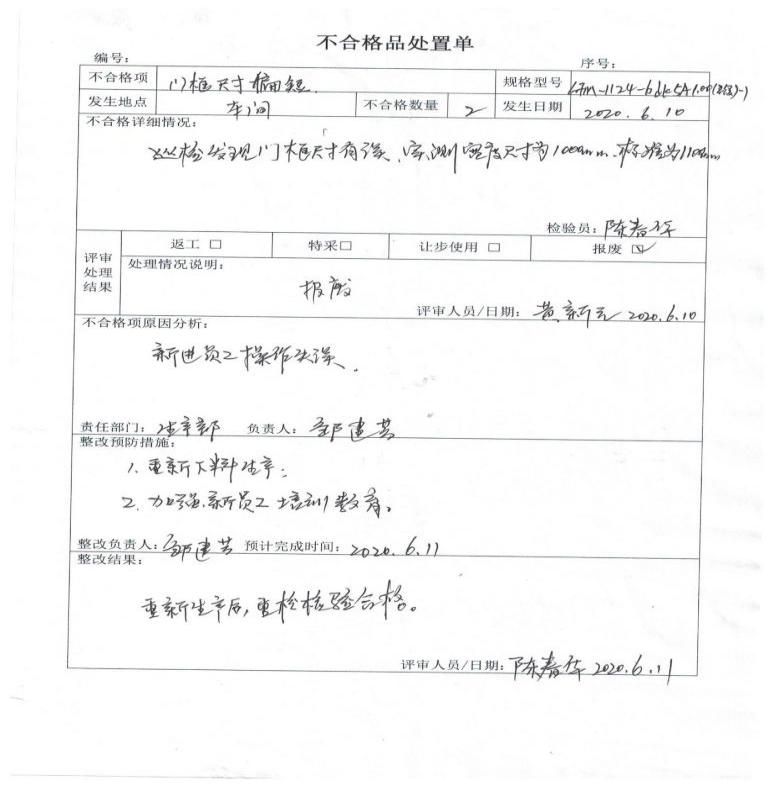 不合格品处置单
编号: 序号:
不合格项 门框尺寸偏短 规格型号
发生地点 车间 不合格数量 2 发生日期 2020.6.10
不合格详细情况:
巡检发现门框尺寸有误、实测宽度尺寸为1000mm.标准为1100mm
检验员: 陈春华
返工 □ 特采□ 让步使用 □ 报废 ☑
评审处理结果
处理情况说明:
报废
评审人员/日期: 黄新元 2020.6.10
不合格项原因分析:
新进员工操作失误.
责任部门: 生产部 负责人: 邹建芳
整改预防措施:
1. 重新下料生产;
2. 加强新员工培训教育。
整改负责人: 邹建芳 预计完成时间: 2020.6.11
整改结果:
重新生产后,重检核验合格。
评审人员/日期: 陈春华 2020.6.11